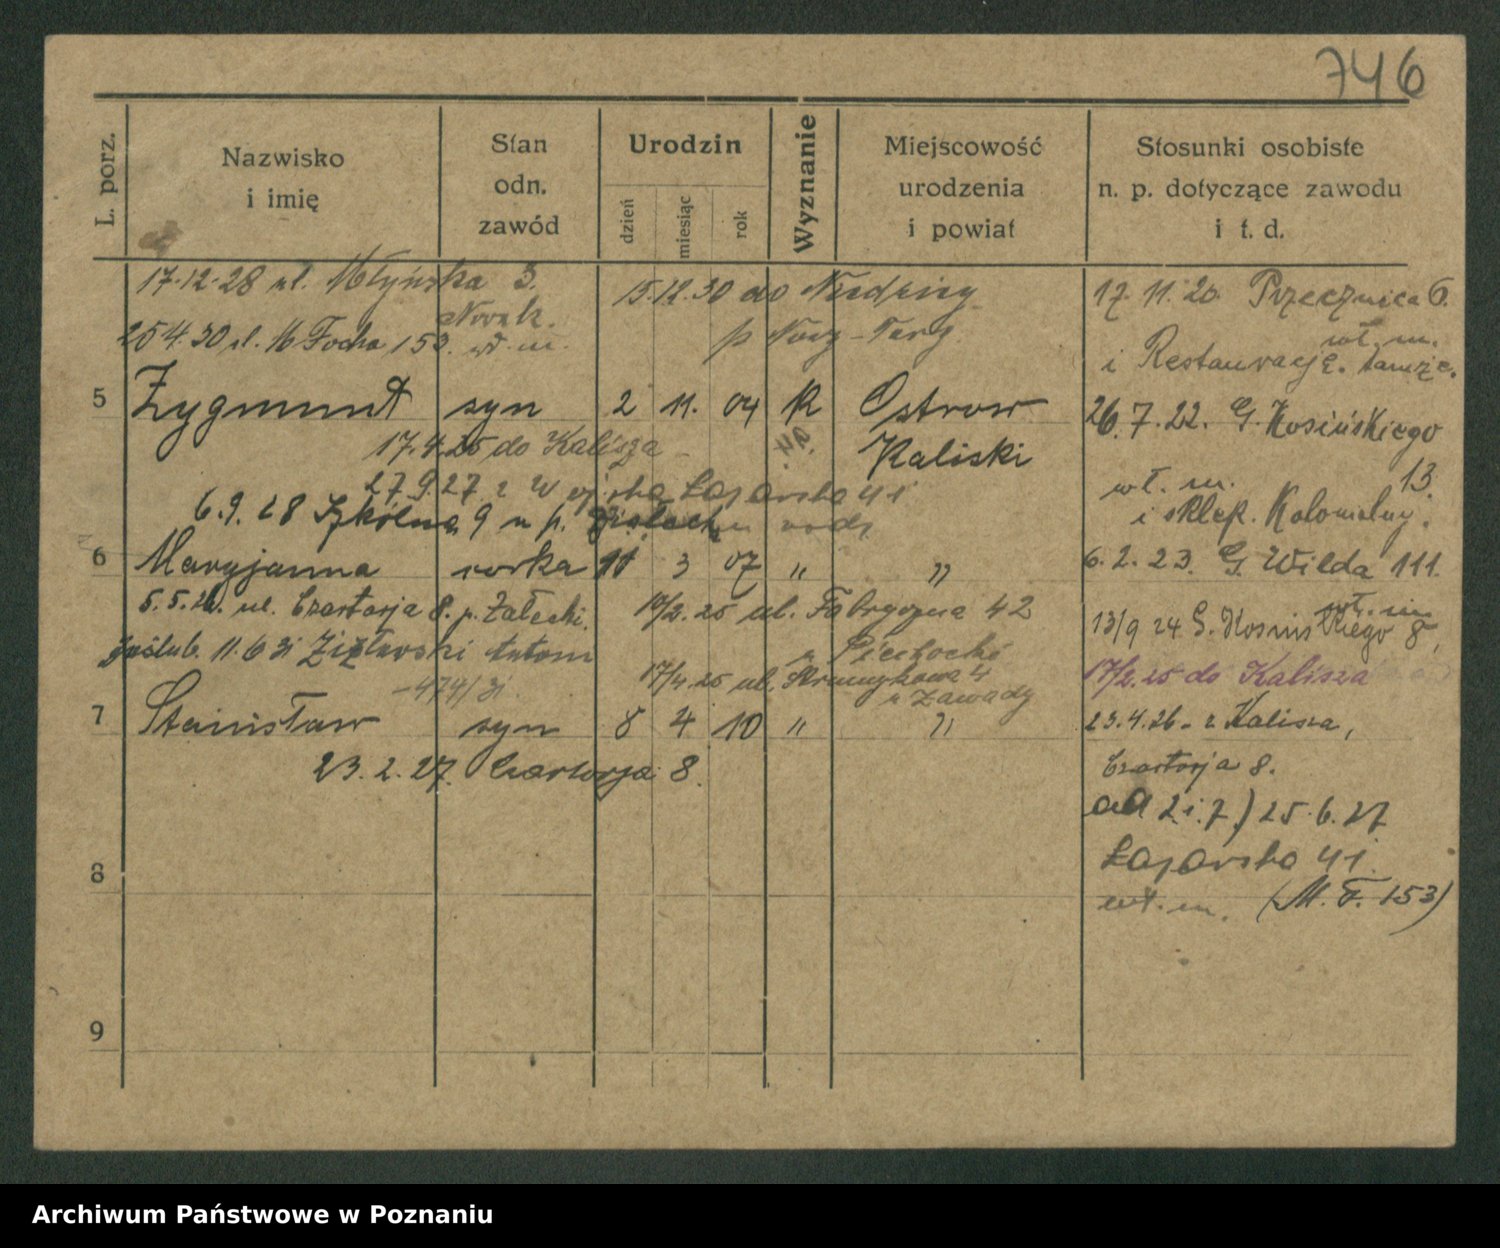 746
L. porz.
Nazwisko i imię
Stan odn. zawód
Urodzin
dzień
miesiąc
rok
Wyznanie
Miejscowość urodzenia i powiat
Stosunki osobiste n. p. dotyczące zawodu i t. d.
17.12.28 ul. Młyńska 3.
Nowak.
25 4.30 ul. M Focha 153. wł. m.
15.12.30 do Niedzicy
p Nowy-Targ
17. 11. 20. Przecznica 6.
wł. m.
i Restauracje. tamże.
5 Zygmunt syn 2 11. 04 R Ostrow
Kaliski
17.4.25 do Kalisza
27.9.27 z Wojska Łazarska 41
6.9.28 Szkólna 9 u p.
26.7.22. G. Kosińskiego
13.
wł. m.
i sklep. Kolonialny.
6 Maryjanna corka 11 3 07 " "
6.2.23. G. Wilda 111.
wł. m.
5.5.26. ul. Czartorja 8. p. Załecki.
10/2.25 ul. Fabryczna 42
u Piechocki
zaślub. 11.6 31 tutom
474/31
17/4.25 ul. 4
u Zawady
13/9 24 G. Kosińskiego 8,
17/2.25 do Kalisza
7 Stanisław syn 8 4 10 " "
23.4.26. z Kalisza,
Czartorja 8.
23.2.27. Czartorja 8.
ad 2 i. 7) 25.6.27
Łazarska 41.
wł. m. (M. F. 153)
8
9
Archiwum Państwowe w Poznaniu